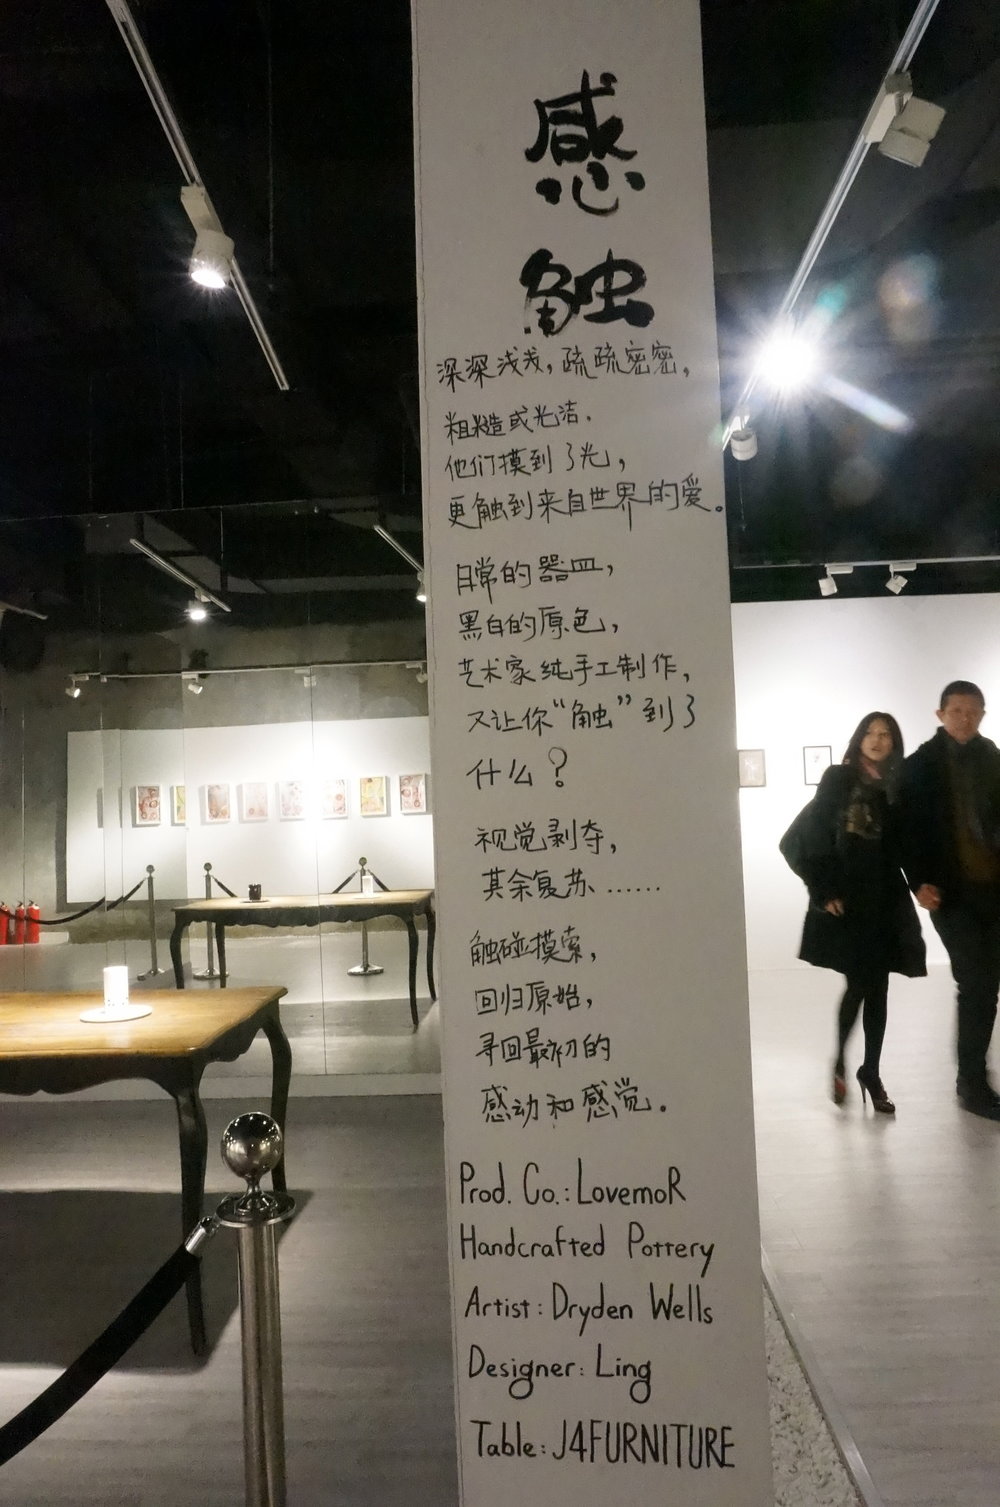 感
触
深深浅浅，疏疏密密，
粗糙或光洁.
他们摸到了光，
更触到来自世界的爱。
日常的器皿，
黑白的原色，
艺术家纯手工制作，
又让你“触”到了
什么？
视觉剥夺，
其余复苏……
触碰摸索，
回归原始，
寻回最初的
感动和感觉。
Prod. Co.: LovemoR
Handcrafted Pottery
Artist: Dryden Wells
Designer: Ling
Table: J4FURNITURE